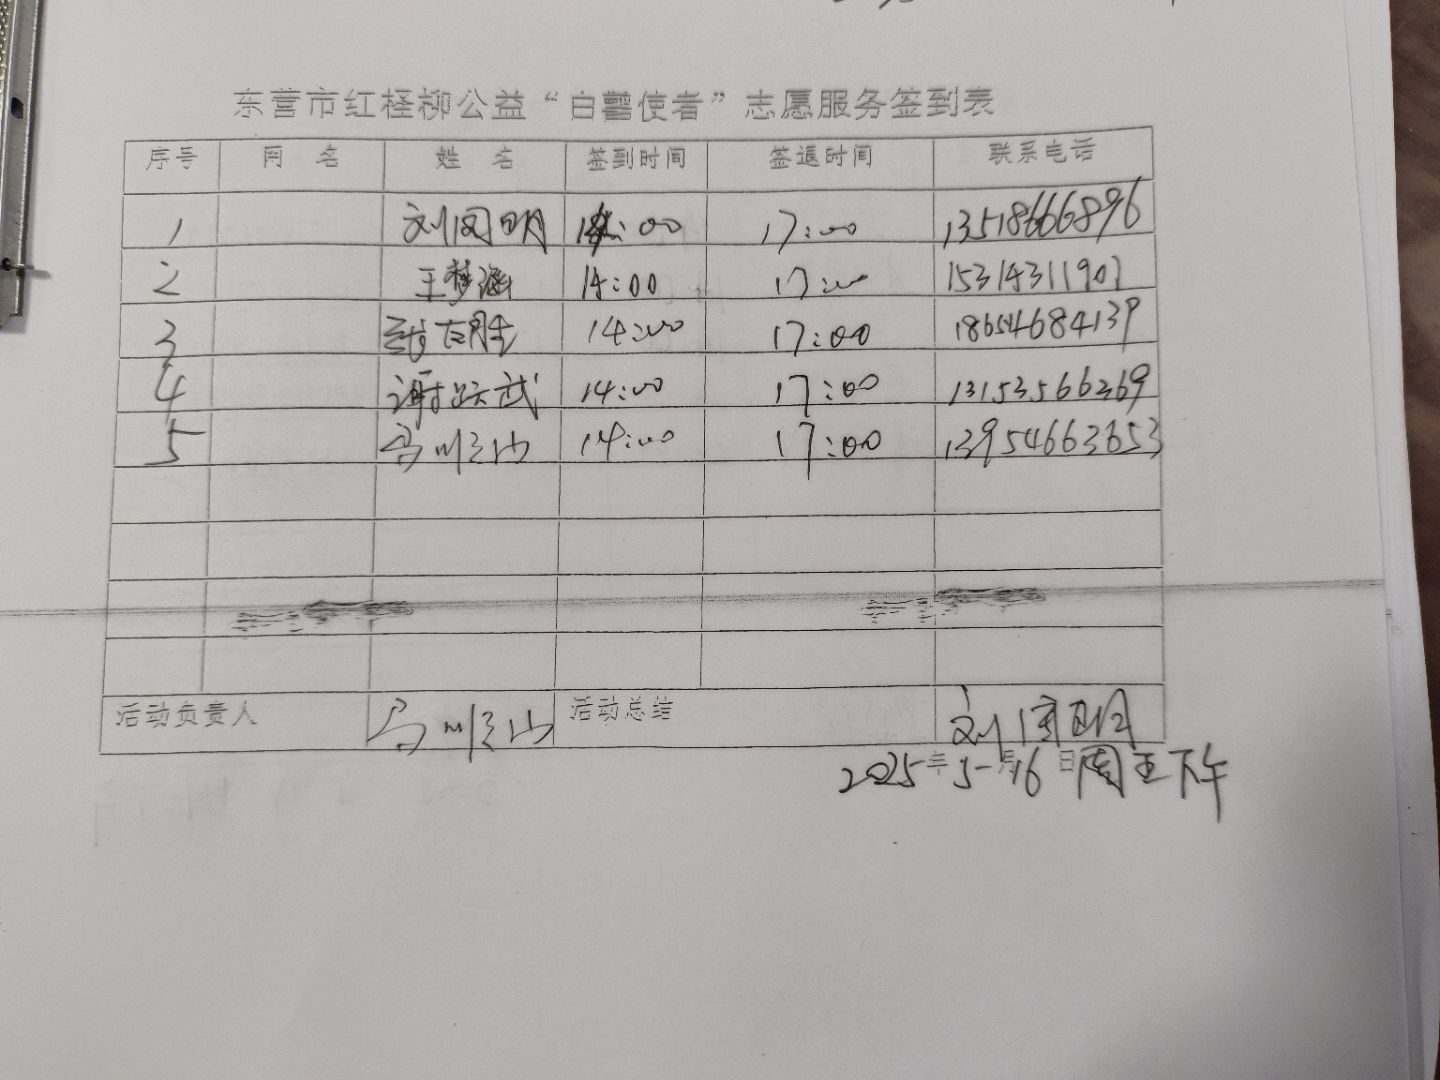 东营市红柽柳公益“白鹭使者”志愿服务签到表
序号 网 名 姓 名 签到时间 签退时间 联系电话
1 刘国明 14:00 17:00 13518666896
2 王梦涵 14:00 17:00 15314311907
3 14:00 17:00 18654684139
4 谢跃武 14:00 17:00 13153566369
5 马顺山 14:00 17:00 13954663653
活动负责人 马顺山 活动总结 刘国明
2025年5月16日周五下午